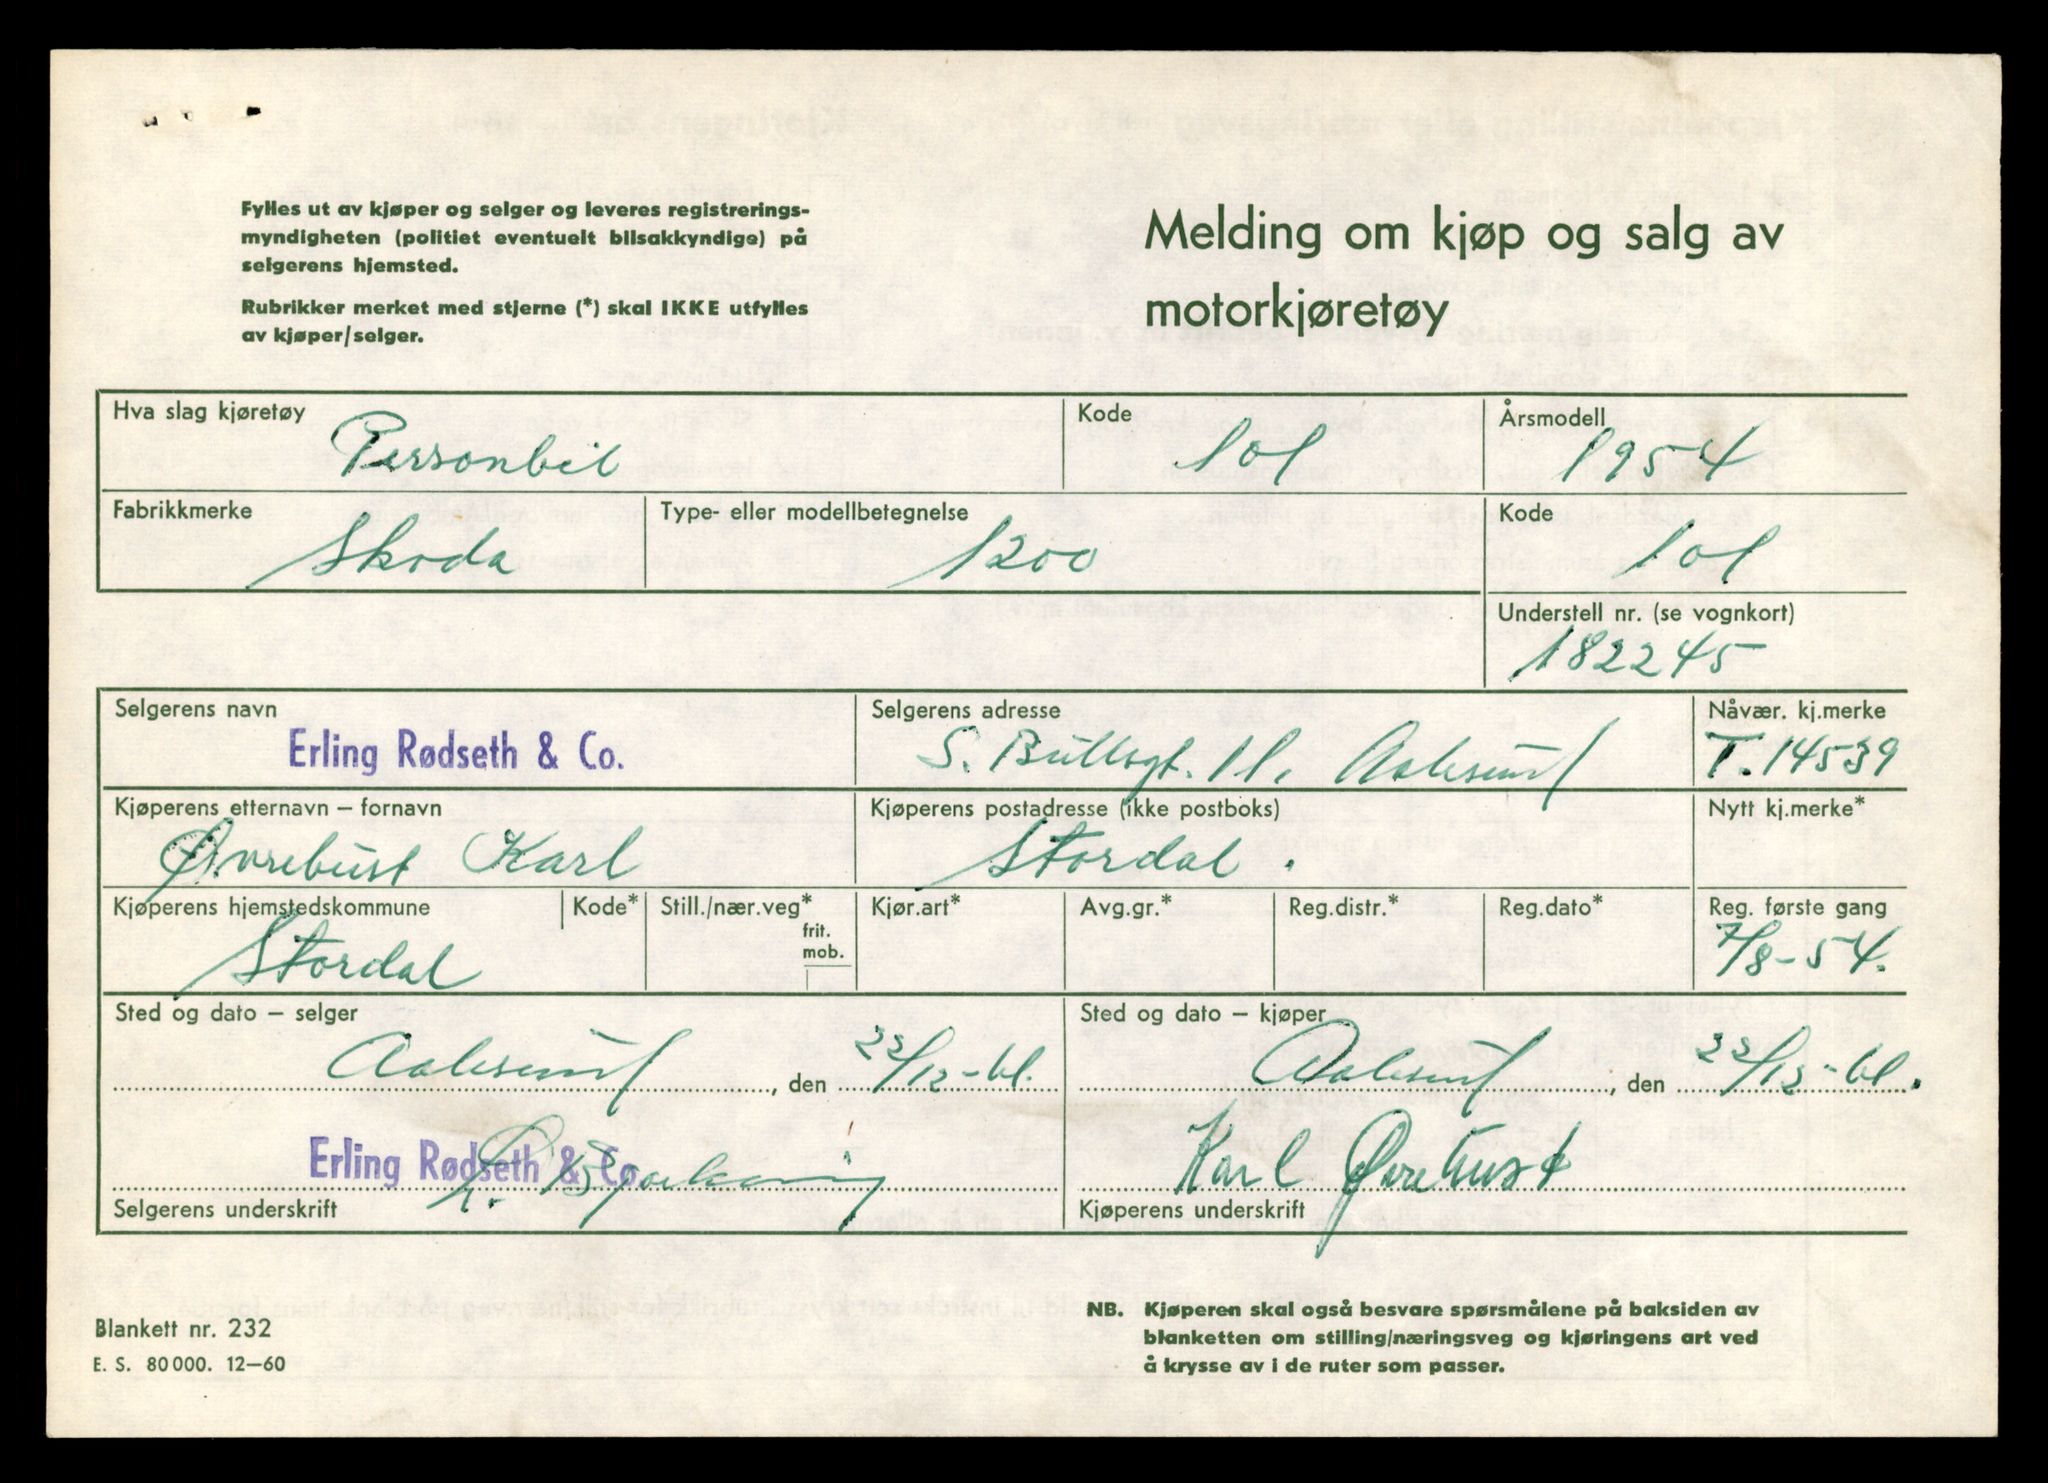 Fylles ut av kjøper og selger og leveres registrerings-
myndigheten (politiet eventuelt bilsakkyndige) på
selgerens hjemsted.
Rubrikker merket med stjerne (*) skal IKKE utfylles
av kjøper/selger.
Melding om kjøp og salg av
motorkjøretøy
Hva slag kjøretøy Kode Årsmodell
Personbil 101 1954
Fabrikkmerke Type- eller modellbetegnelse Kode
Skoda 1200 101
Understell nr. (se vognkort)
182245
Selgerens navn Selgerens adresse Nåvær. kj.merke
Erling Rødseth & Co. S. Bullsgt. 11, Aalesund T.14539
Kjøperens etternavn – fornavn Kjøperens postadresse (ikke postboks) Nytt kj.merke*
Øvrebust Karl Stordal.
Kjøperens hjemstedskommune Kode* Still./nær.veg* Kjør.art* Avg.gr.* Reg.distr.* Reg.dato* Reg. første gang
frit.
mob.
Stordal 7/8-54.
Sted og dato – selger Sted og dato – kjøper
Aalesund, den 22/12-61. Aalesund, den 22/12-61.
Erling Rødseth & Co. Karl Øvrebust
Selgerens underskrift Kjøperens underskrift
NB. Kjøperen skal også besvare spørsmålene på baksiden av
blanketten om stilling/næringsveg og kjøringens art ved
å krysse av i de ruter som passer.
Blankett nr. 232
E. S. 80000. 12–60